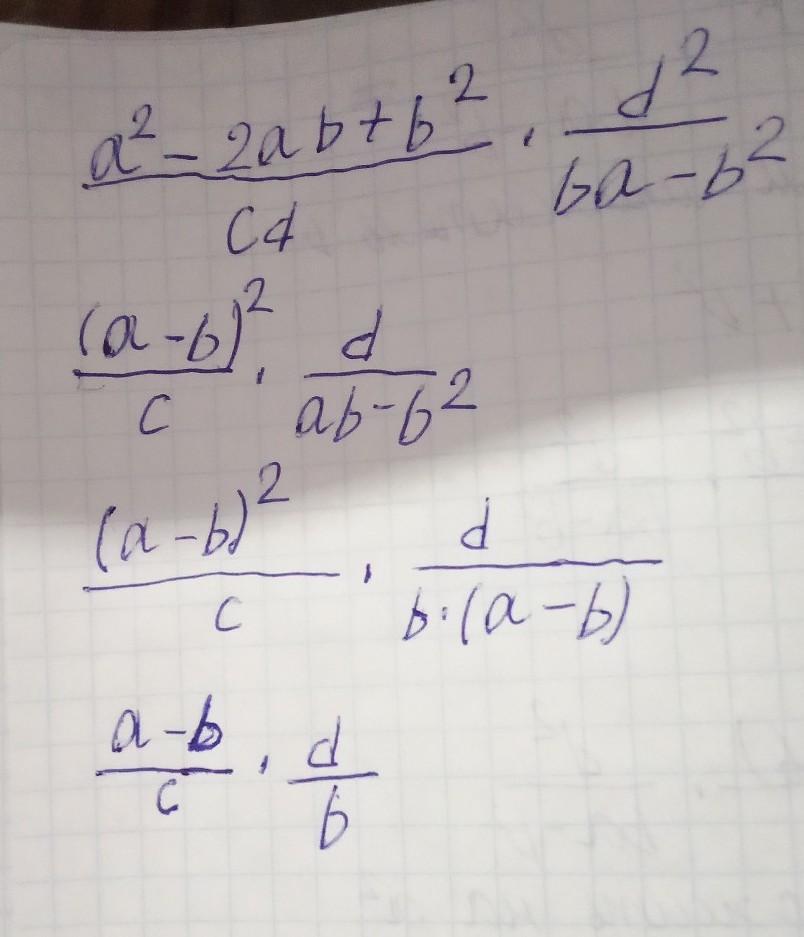 (a² − 2ab + b²)/(cd) · d²/(ba − b²)
(a − b)²/c · d/(ab − b²)
(a − b)²/c · d/(b·(a − b))
(a − b)/c · d/b